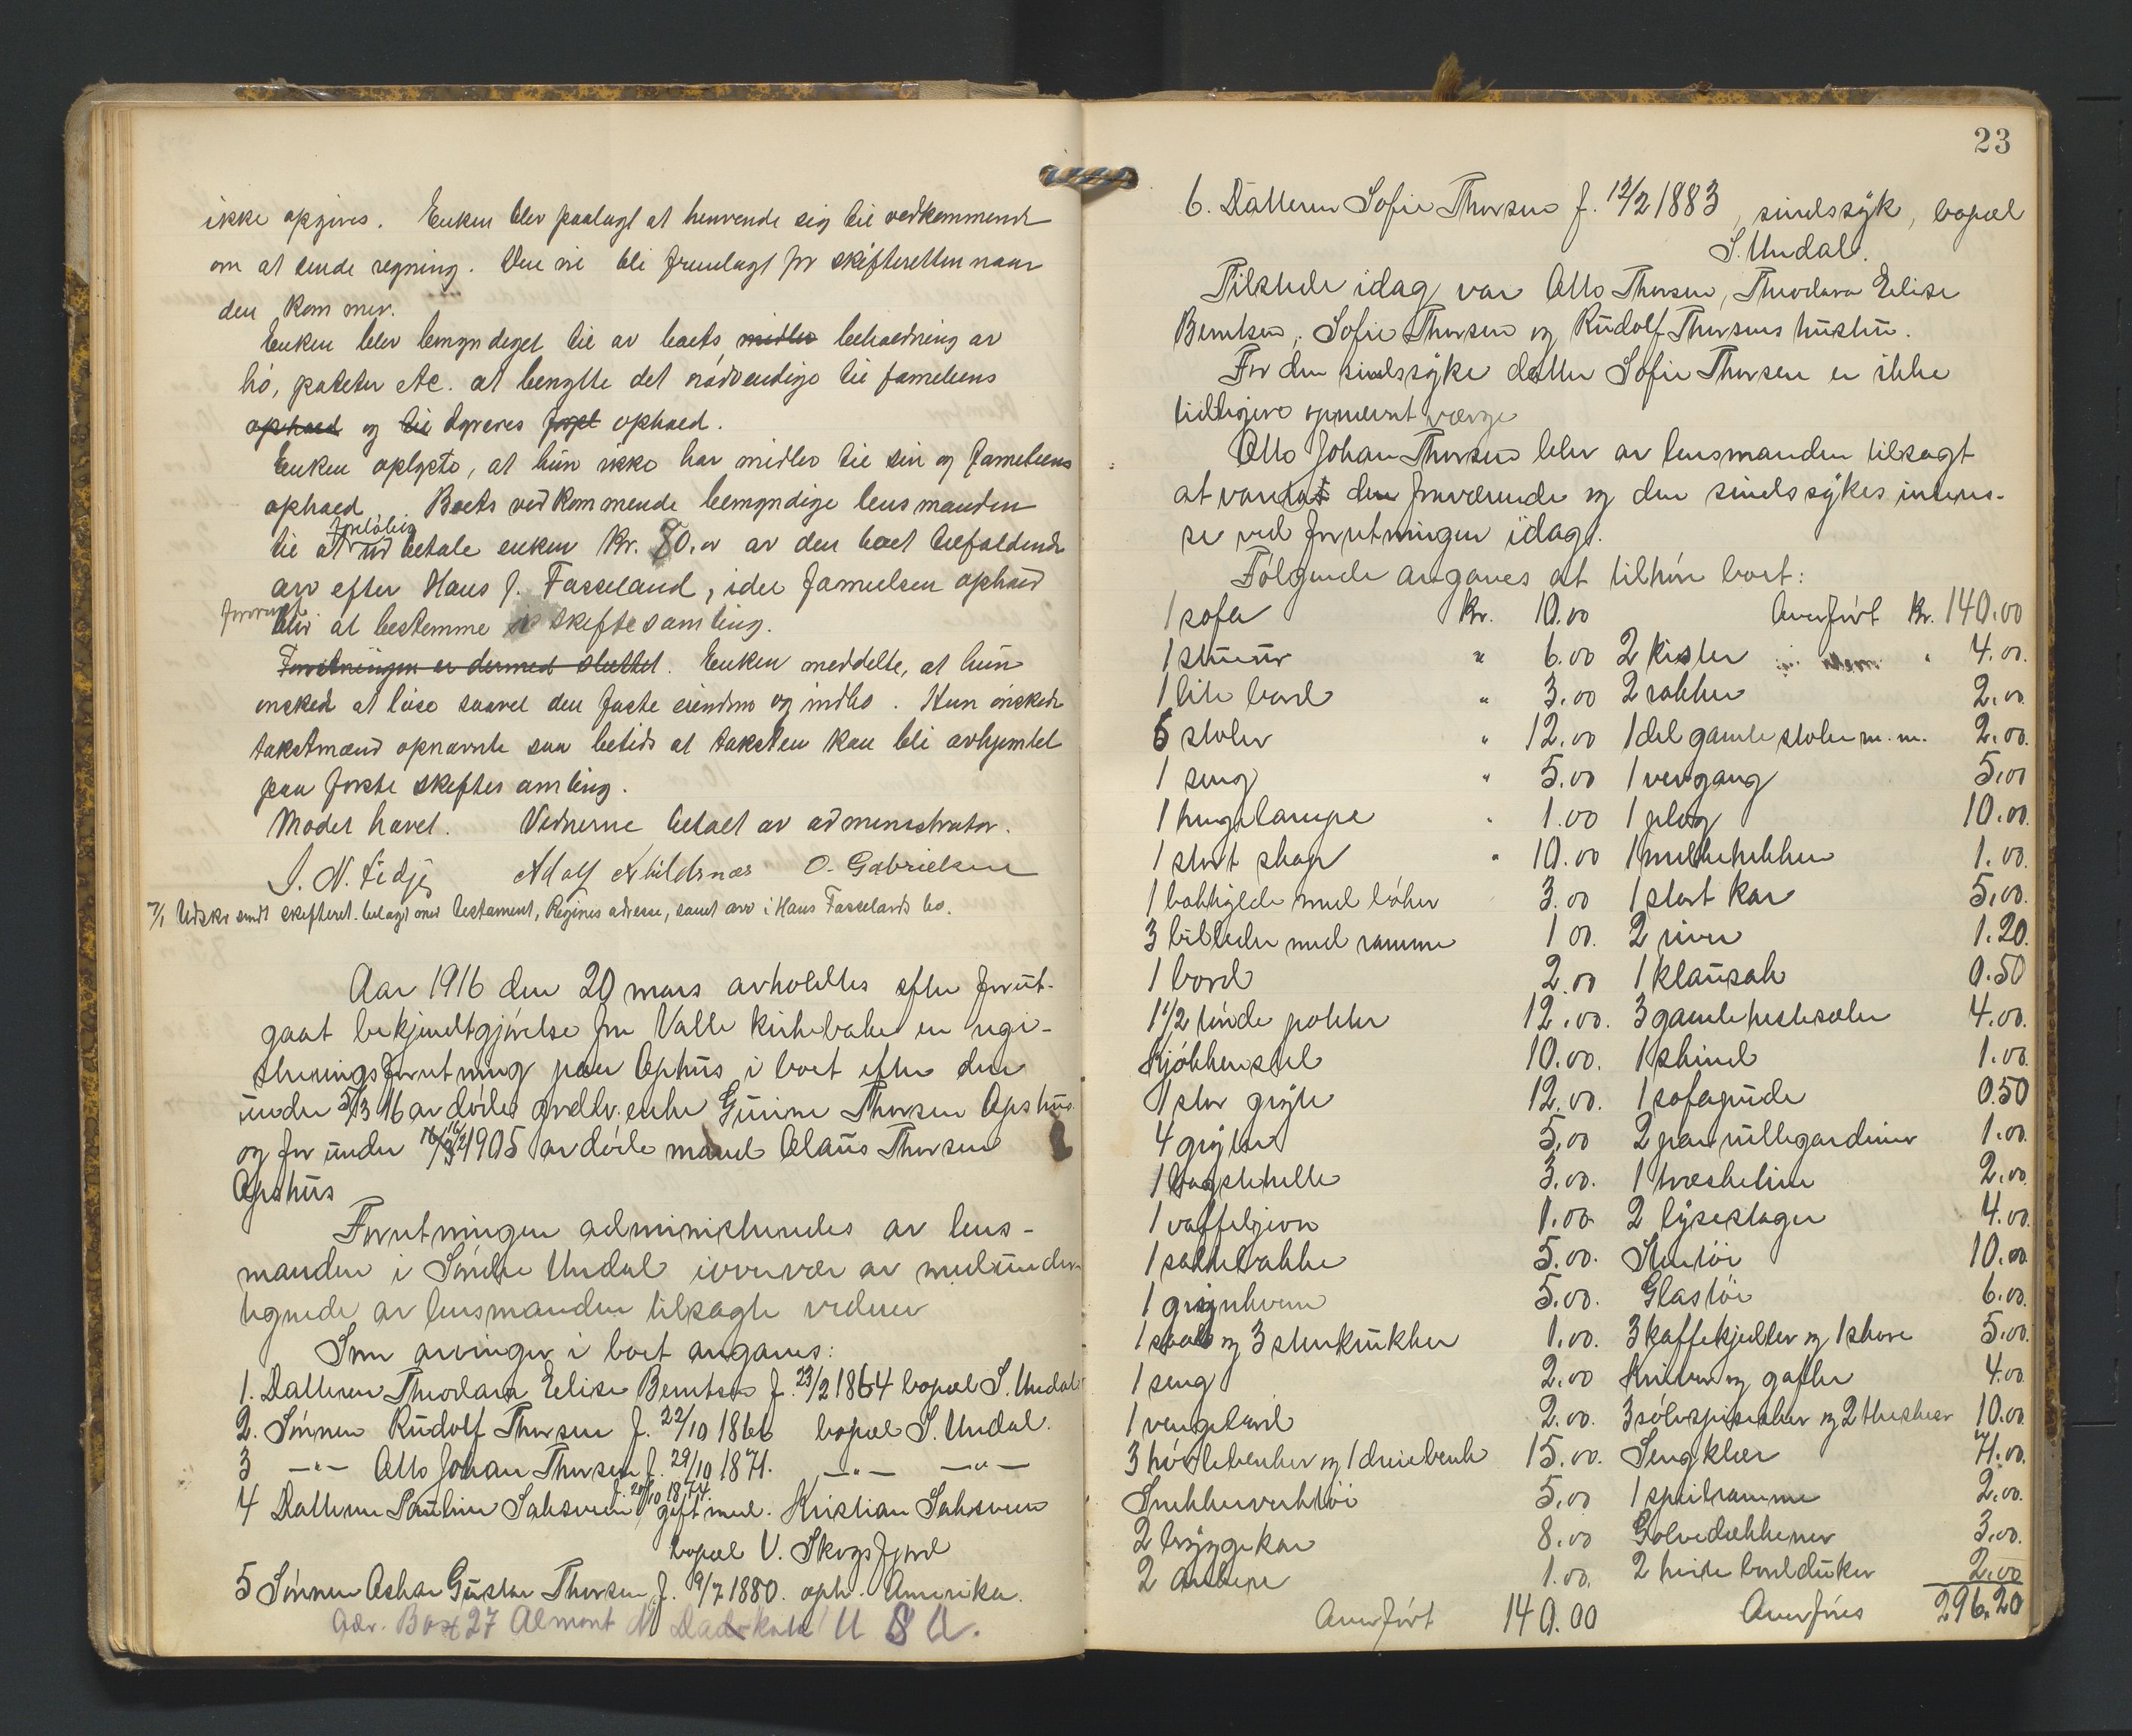 ikke opgives. Enken blev paalagt at henvende sig til vedkommende
om at sende regning. Den vil bli fremlagt for skifteretten naar
den kommer.
Enken blev bemyndiget til av boets midler beholdning av
hö, poteter etc. at benytte det nödvendige til familiens
ophold og til dyrenes ophold.
Enken oplyste, at hun ikke har midler til sin og familiens
ophold. Boets vedkommende bemyndige lensmanden
til at forelöbig ud betale enken Kr. 80.00 av den boet tilfaldende
arv efter Hans J. Fasseland, idet familiens ophold
forövrigt blir at bestemme i skiftesamling.
Forretningen er dermed sluttet. Enken meddelte, at hun
önsked at löse saavel den faste eiendom og indbo. Hun önskede
takstmænd opnævnte saa betids at taksten kan bli avhjemlet
paa förste skiftesamling.
Mödet hævet. Vidnerne betalt av administrator.
S. N. Fidje Adolf Abildsnes O. Gabrielsen
7/1 Udskr. sendt skifteret. bilagt med testament, Regines adresse, samt arv i Hans Fasselands bo.
Aar 1916 den 20 mars avholdtes efter forut-
gaat bekjendtgjörelse fra Valle kirkebakke en regi-
streringsforretning paa Ophus i boet efter den
under 5/3 16 avdöde grdbr. enke Gurine Thorsen Opshus
og for under 16/2 1905 avdöde mand Claus Thorsen
Opshus
Forretningen administreredes av lens-
manden i Söndre Undal iovervær av medunder-
tegnede av lensmanden tilsagte vidner
Som arvinger i boet angaves:
1. Datteren Theodara Elise Berntsen f. 23/2 1864 bopæl S. Undal
2. Sönnen Rudolf Thorsen f. 22/10 1866 bopæl S. Undal.
3 —"— Otto Johan Thorsen f. 29/10 1871. —"— —"—
4 Datteren Pauline Salvesen f. 20/10 1874 gift med. Kristian Salvesen
bopæl V. Skogsfjord
5 Sönnen Oskar Gustav Thorsen f. 9/7 1880. oph. Amerika.
Adr. Box 27 Almont N Dadkota U S A.
23
6. Datteren Sofie Thorsen f. 12/2 1883, sindssyk, bopæl
S. Undal.
Tilstede idag var Otto Thorsen, Theodara Elise
Berntsen, Sofie Thorsen og Rudolf Thorsens hustru.
For den sindssyke datter Sofie Thorsen er ikke
tidligere opnævnt værge
Otto Johan Thorsen blev av lensmanden tilsagt
at vareta den fraværende og den sindssykes interes-
se ved forretningen idag.
Fölgende angaves at tilhöre boet:
1 sofa Kr. 10.00 Overfört Kr. 140.00
1 stueur " 6.00 2 kister " 4.00.
1 lite bord " 3.00 2 rokker 2.00
6 stoler " 12.00 1 del gamle stoler m.m. 2.00.
1 seng " 5.00 1 vevgang 5.00
1 hengelampe " 1.00 1 plog 10.00.
1 stort skap " 10.00 1 melkebakken 1.00.
1 bokhylde med böker 3.00 1 stort kar 5.00.
3 billeder med ramme 1 00. 2 river 1.20.
1 bord 2.00 1 klausak 0.50
1 1/2 tönde poteter 12.00. 3 gamle hesteseler 4.00.
Kjökkenstel 10.00. 1 skind 1.00.
1 stor gryte 12.00. 1 sofapude 0.50
4 gryter 5.00 2 par rullegardiner 1.00.
1 bakstehelle 3.00. 1 træskeline 2.00.
1 vaffeljern 1.00 2 lysestager 4.00.
1 saltebakke 5.00. Stentöi 10.00
1 grynkvern 5.00. Glastöi 6.00.
1 saald og 3 stenkrukker 1.00. 3 kaffekjeller og 1 skore 5.00.
1 seng 2.00 Kniver og gafler 4.00
1 vengebord 2.00. 3 sölvspiseskeer og 2 theskeer 10.00.
3 hövlebenker og 1 dreiebenk 15.00. Sengklær 71.00.
Snekkerverktöi 5.00 1 speilramme 2.00.
2 bryggekar 8.00 Golvedækkener 3.00.
2 ambere 1.00. 2 hvite bordduker 2.00
Overfört 140.00 Overföres 296.20